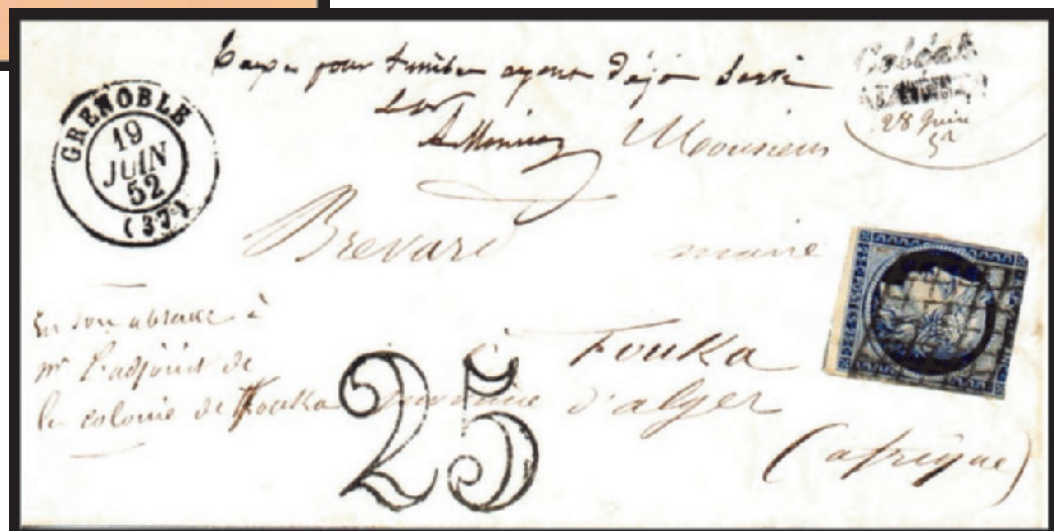 Taxe pour timbre ayant déjà servi
GRENOBLE
19
JUIN
52
(37)
Coléah
28 Juin
52
Monsieur
Brevard maire
Fouka
d'alger
(afrique)
En son absence à
mr L'adjoint de
la colonie de Fouka
25